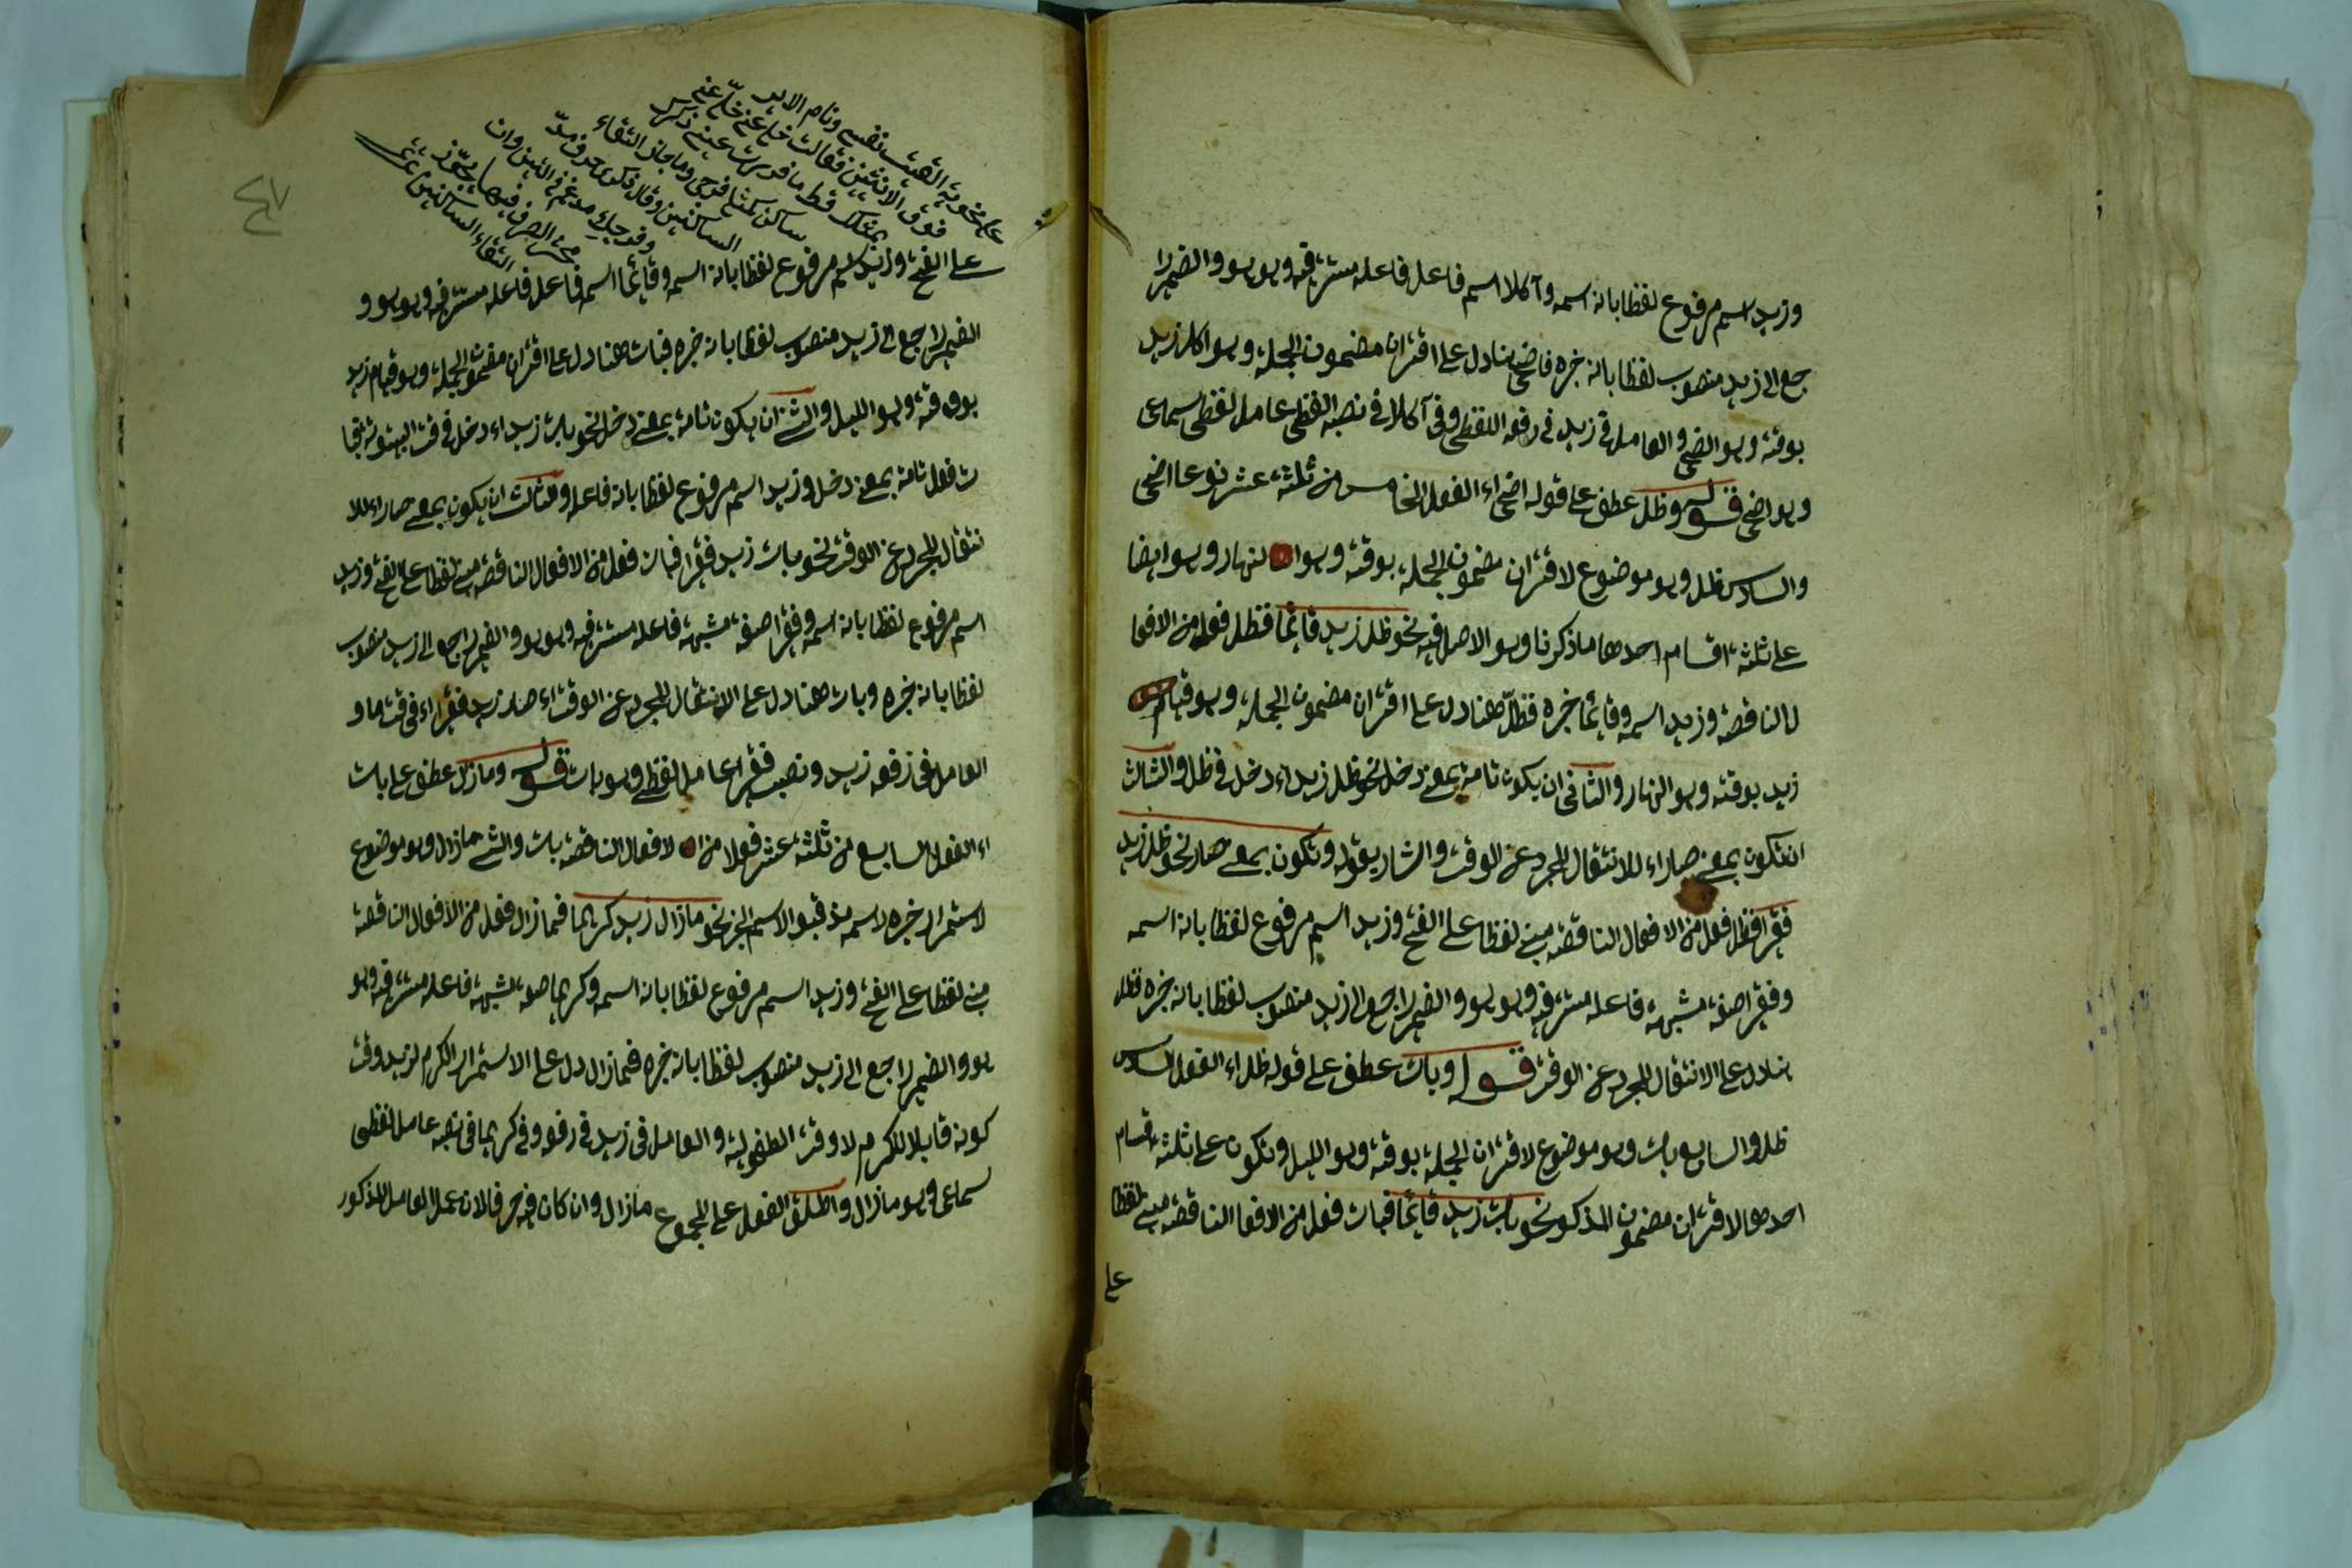 وزيد اسم مرفوع لفظا بانه اسمه وآكلا اسم فاعل فاعله مستتر فيه وهو هو والضمير را
جع الى زيد منصوب لفظا بانه خبره فاضحى هنا دل على اقتران مضمون الجملة وهو اكل زيد
بوقته وهو الضحى والعامل فى زيد فى رفعه اللفظى وفى آكلا فى نصبه اللفظى عامل لفظى سماعى
وهو اضحى قوله وظل عطف على قوله اضحى اى الفعل الخامس من ثلثة عشر نوعا اضحى
والسادس ظل وهو موضوع لاقتران مضمون الجملة بوقته وهو النهار وهو ايضا
على ثلثة اقسام احدها ما ذكرنا وهو الاصل فيه نحو ظل زيد قائما فظل فعل من الافعا
ل الناقصة وزيد اسمه وقائما خبره فظل هنا دل على اقتران مضمون الجملة وهو قيام
زيد بوقته وهو النهار والثانى ان يكون تامة بمعنى دخل نحو ظل زيد اى دخل فى ظل والثالث
ان تكون بمعنى صار اى للانتقال المجرد عن الوقت واشار بقوله وتكون بمعنى صار نحو ظل زيد
فقيرا فظل فعل من الافعال الناقصة مبنى لفظا على الفتح وزيد اسم مرفوع لفظا بانه اسمه
وفقيرا صفة مشبهة فاعله مستتر فيه وهو هو والضمير راجع الى زيد منصوب لفظا بانه خبره فظل
هنا دل على الانتقال المجرد عن الوقت قوله وبات عطف على قوله ظل اى الفعل السادس
ظل والسابع بات وهو موضوع لاقتران الجملة بوقته وهو الليل وتكون على ثلثة اقسام
احدها لاقتران مضمون المذكور نحو بات زيد قائما فبات فعل من الافعا الناقصة مبنى لفظا
على
٤٧
فوق الاثنين فقالت خل عنى خل عنى
على الفتح وزيد اسم مرفوع لفظا بانه اسمه وقائما اسم فاعل فاعله مستتر فيه وهو هو و
الضمير راجع الى زيد منصوب لفظا بانه خبره فبات هنا دل على اقتران مضمون الجملة وهو قيام زيد
بوقته وهو الليل والثانى ان يكون تامة بمعنى دخل نحو بات زيد اى دخل فى وقت البيتوتة فبا
ت فعل تامة بمعنى دخل وزيد اسم مرفوع لفظا بانه فاعله والثالث ان يكون بمعنى صار اى للا
نتقال المجرد عن الوقت نحو بات زيد فقيرا فبات فعل من الافعال الناقصة مبنى لفظا على الفتح وزيد
اسم مرفوع لفظا بانه اسمه وفقيرا صفة مشبهة فاعله مستتر فيه وهو هو والضمير راجع الى زيد منصوب
لفظا بانه خبره وبات هنا دل على الانتقال المجرد عن الوقت اى صار زيد فقيرا اى فى وقت ما و
العامل فى رفعه زيد ونصب فقيرا عامل لفظى وهو بات قوله وما زال عطف على بات
اى الفعل السابع من ثلثة عشر فعلا من الافعال الناقصة بات والثامن ما زال وهو موضوع
لاستمرار خبره لاسمه مذ قبل الاسم الخبر نحو ما زال زيد كريما فما زال فعل من الافعال الناقصة
مبنى لفظا على الفتح وزيد اسم مرفوع لفظا بانه اسمه وكريما صفة مشبهة فاعله مستتر فيه وهو
هو والضمير راجع الى زيد منصوب لفظا بانه خبره فما زال دل على الاستمرار الكرم لزيد وقت
كونه قابلا للكرم لا وقت الطفولية والعامل فى زيد فى رفعه وفى كريما فى نصبه عامل لفظى
سماعى وهو ما زال واطلق الفعل على المجموع ما زال وان كان فيه حرفا لان عمل العامل المذكور